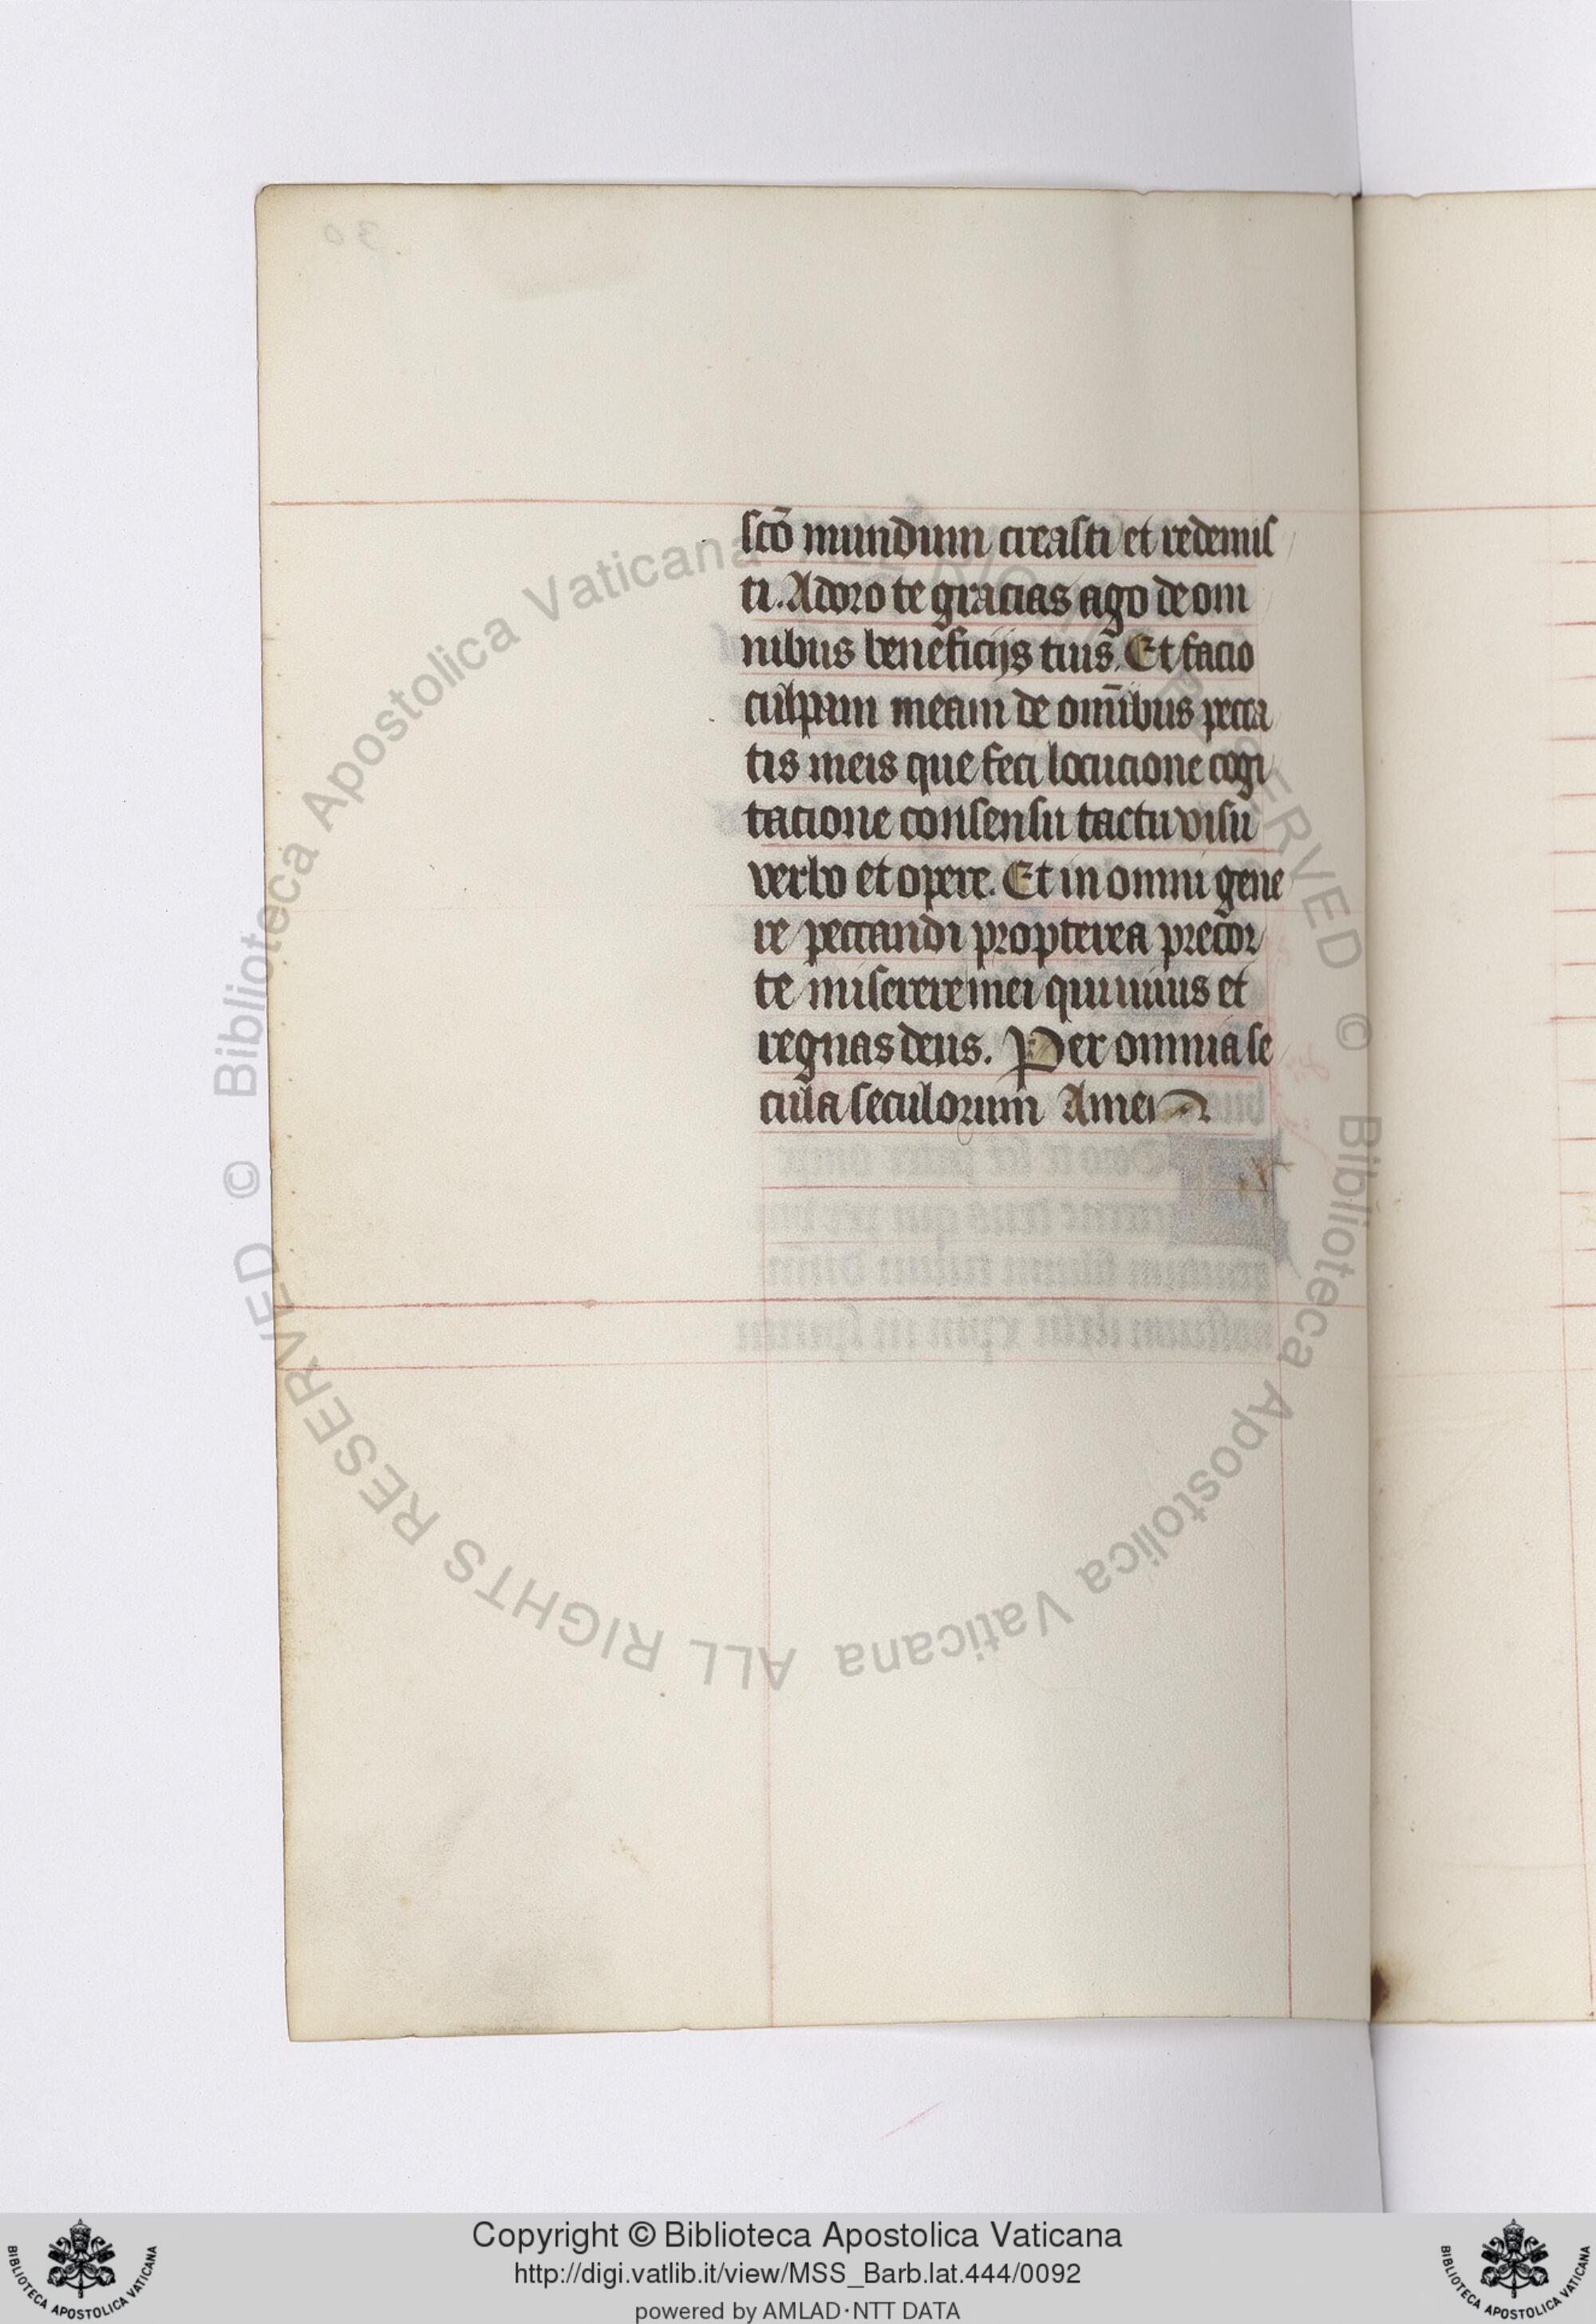 scō mundum creasti et redemis
ti. Adoro te gracias ago de om
nibus beneficijs tuis. Et facio
culpam meam de omībus pecca
tis meis que feci locucione cogi
tacione consensu tactu visu
verbo et opere. Et in omni gene
re peccandi propterea precor
te miserere mei qui uiuis et
regnas deus. Per omnia se
cula seculorum Amen
Biblioteca Apostolica Vaticana ALL RIGHTS RESERVED ©
Biblioteca Apostolica Vaticana ALL RIGHTS RESERVED ©
Copyright © Biblioteca Apostolica Vaticana
http://digi.vatlib.it/view/MSS_Barb.lat.444/0092
powered by AMLAD·NTT DATA
BIBLIOTECA APOSTOLICA VATICANA
BIBLIOTECA APOSTOLICA VATICANA